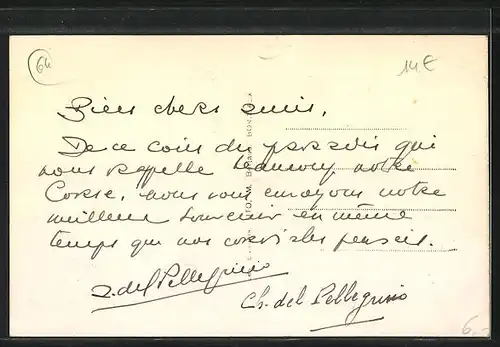 64
14 €
Biens chers amis,
De ce coin du paradis qui
nous rappelle beaucoup notre
Corse, nous vous envoyons notre
meilleur souvenir en même
temps que nos cordiales pensées.
J. del Pellegrino
Ch. del Pellegrino
6,-